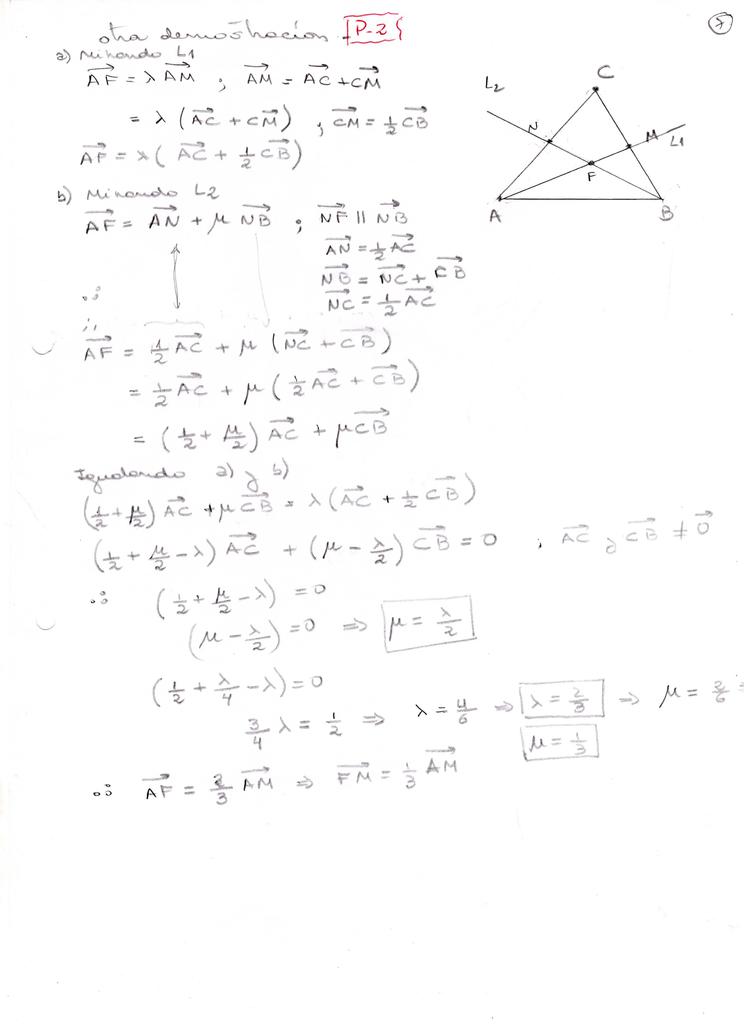 otra demostración - P-2
7
a) Mirando L1
AF⃗ = λ AM⃗ ; AM⃗ = AC⃗ + CM⃗
= λ (AC⃗ + CM⃗) ; CM⃗ = 1/2 CB⃗
AF⃗ = λ (AC⃗ + 1/2 CB⃗)
L2
C
N
M
L1
F
A
B
b) Mirando L2
AF⃗ = AN⃗ + μ NB⃗ ; NF⃗ || NB⃗
AN⃗ = 1/2 AC⃗
NB⃗ = NC⃗ + CB⃗
NC⃗ = 1/2 AC⃗
∴
AF⃗ = 1/2 AC⃗ + μ (NC⃗ + CB⃗)
= 1/2 AC⃗ + μ (1/2 AC⃗ + CB⃗)
= (1/2 + μ/2) AC⃗ + μ CB⃗
Igualando a) y b)
(1/2 + μ/2) AC⃗ + μ CB⃗ = λ (AC⃗ + 1/2 CB⃗)
(1/2 + μ/2 - λ) AC⃗ + (μ - λ/2) CB⃗ = 0 ; AC⃗ y CB⃗ ≠ 0⃗
∴ (1/2 + μ/2 - λ) = 0
(μ - λ/2) = 0 ⇒ μ = λ/2
(1/2 + λ/4 - λ) = 0
3/4 λ = 1/2 ⇒ λ = 4/6 ⇒ λ = 2/3 ⇒ μ = 2/6 =
μ = 1/3
∴ AF⃗ = 2/3 AM⃗ ⇒ FM⃗ = 1/3 AM⃗